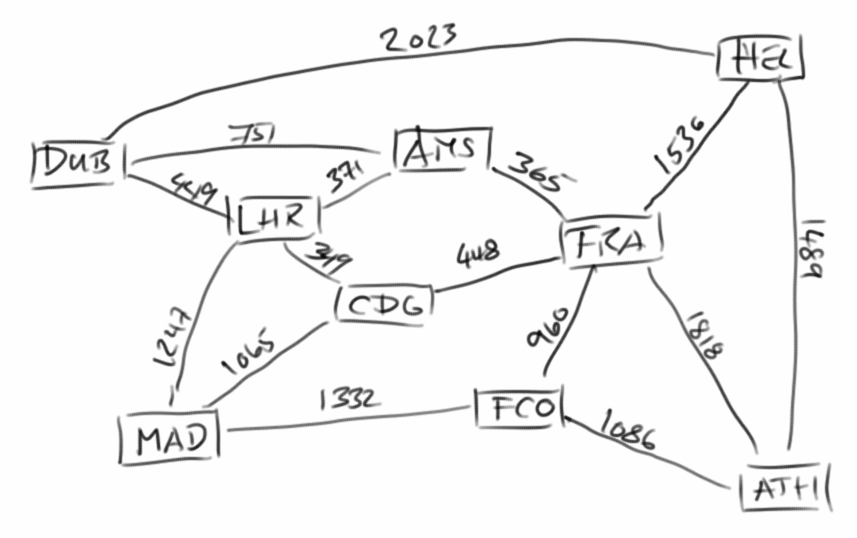 2023
HEL
DUB
751
AMS
449
371
365
1536
LHR
FRA
349
448
1489
CDG
1247
1065
960
1818
1332
FCO
MAD
1086
ATH